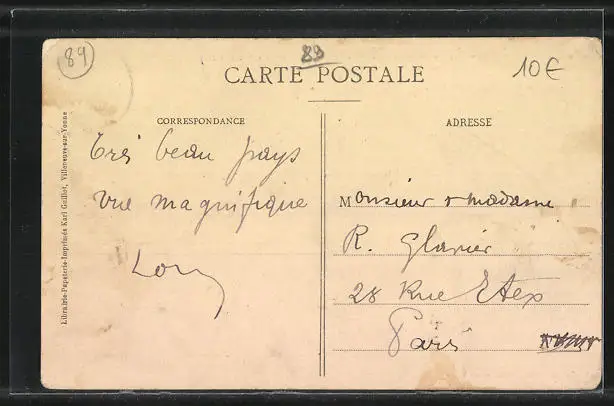 89
89
10€
CARTE POSTALE
CORRESPONDANCE
ADRESSE
Très beau pays
vue magnifique
Monsieur & Madame
R. Glanier
28 Rue Etex
Paris
Librairie-Papeterie-Imprimés Karl Guillot, Villeneuve-sur-Yonne